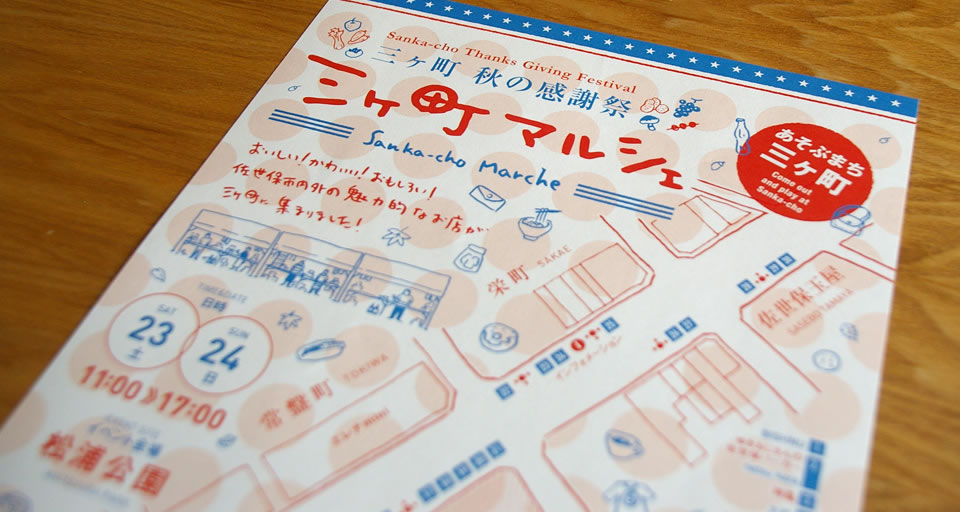 Sanka-cho Thanks Giving Festival
三ヶ町 秋の感謝祭
三ヶ町 マルシェ
Sanka-cho Marche
あそぶまち
三ヶ町
Come out
and play at
Sanka-cho
おいしい!かわいい!おもしろい!
佐世保市内外の魅力的なお店が
三ヶ町に集まりました!
栄町 SAKAE
佐世保玉屋
SASEBO TAMAYA
インフォメーション
TIME&DATE
日時
SAT
23
土
SUN
24
日
11:00 » 17:00
常盤町 TOKIWA
イベント会場
松浦公園